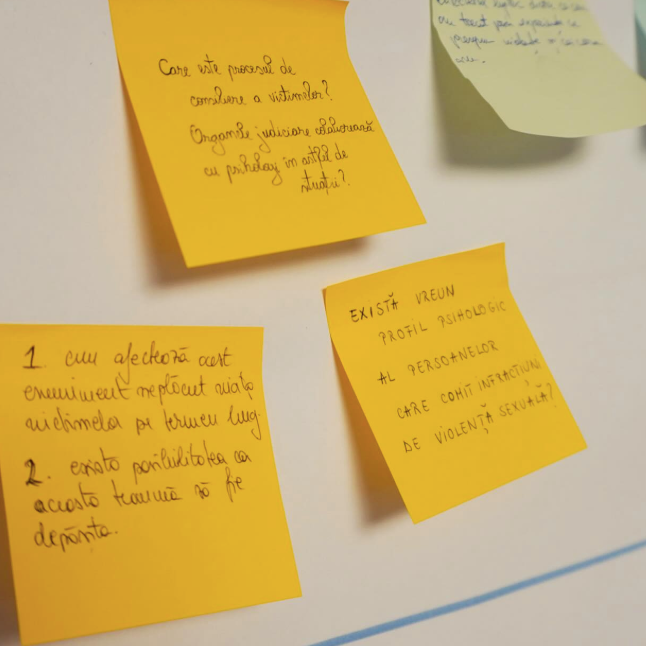 Care este procesul de
consiliere a victimelor?
Organele judiciare colaborează
cu psihologi în astfel de
situații?
EXISTĂ VREUN
PROFIL PSIHOLOGIC
AL PERSOANELOR
CARE COMIT INFRACȚIUNI
DE VIOLENȚĂ SEXUALĂ?
1. cum afectează acest
eveniment neplăcut viața
victimelor pe termen lung.
2. exista posibilitatea ca
aceasta traumă să fie
depășita.